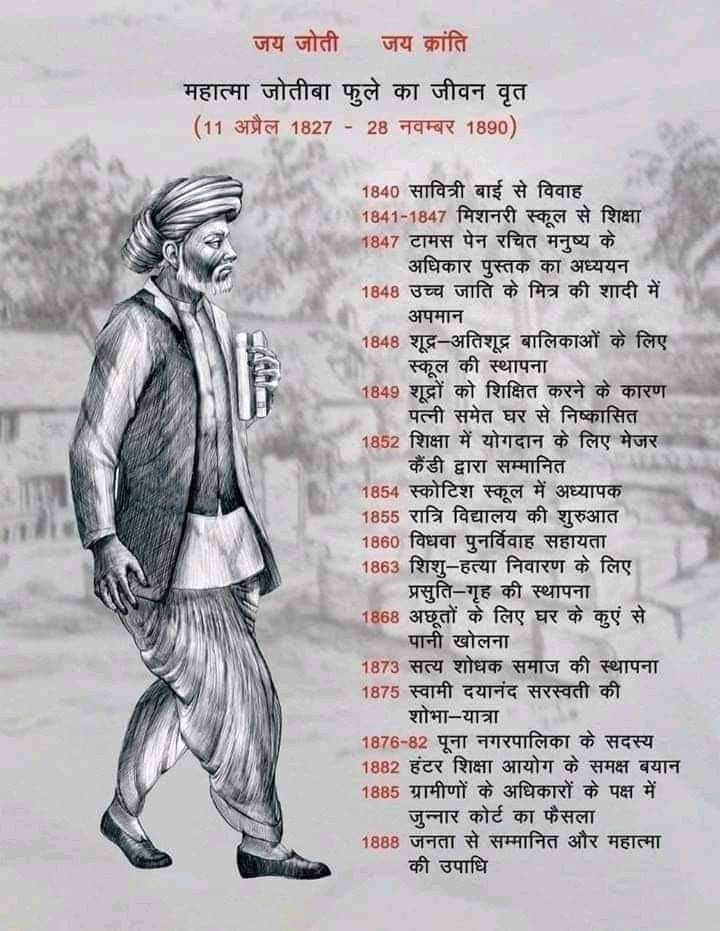 जय जोती जय क्रांति
महात्मा जोतीबा फुले का जीवन वृत
(11 अप्रैल 1827 - 28 नवम्बर 1890)
1840 सावित्री बाई से विवाह
1841-1847 मिशनरी स्कूल से शिक्षा
1847 टामस पेन रचित मनुष्य के
अधिकार पुस्तक का अध्ययन
1848 उच्च जाति के मित्र की शादी में
अपमान
1848 शूद्र–अतिशूद्र बालिकाओं के लिए
स्कूल की स्थापना
1849 शूद्रों को शिक्षित करने के कारण
पत्नी समेत घर से निष्कासित
1852 शिक्षा में योगदान के लिए मेजर
कैंडी द्वारा सम्मानित
1854 स्कोटिश स्कूल में अध्यापक
1855 रात्रि विद्यालय की शुरुआत
1860 विधवा पुनर्विवाह सहायता
1863 शिशु–हत्या निवारण के लिए
प्रसुति–गृह की स्थापना
1868 अछूतों के लिए घर के कुएं से
पानी खोलना
1873 सत्य शोधक समाज की स्थापना
1875 स्वामी दयानंद सरस्वती की
शोभा–यात्रा
1876-82 पूना नगरपालिका के सदस्य
1882 हंटर शिक्षा आयोग के समक्ष बयान
1885 ग्रामीणों के अधिकारों के पक्ष में
जुन्नार कोर्ट का फैसला
1888 जनता से सम्मानित और महात्मा
की उपाधि